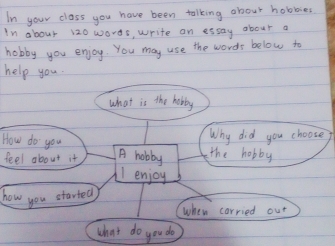 In your class you have been talking about hobbies
In about 120 words, write an essay about a
hobby you enjoy. You may use the words below to
help you.
What is the hobby
How do you
feel about it
Why did you choose
the hobby
A hobby
I enjoy
how you started
When carried out
What do you do